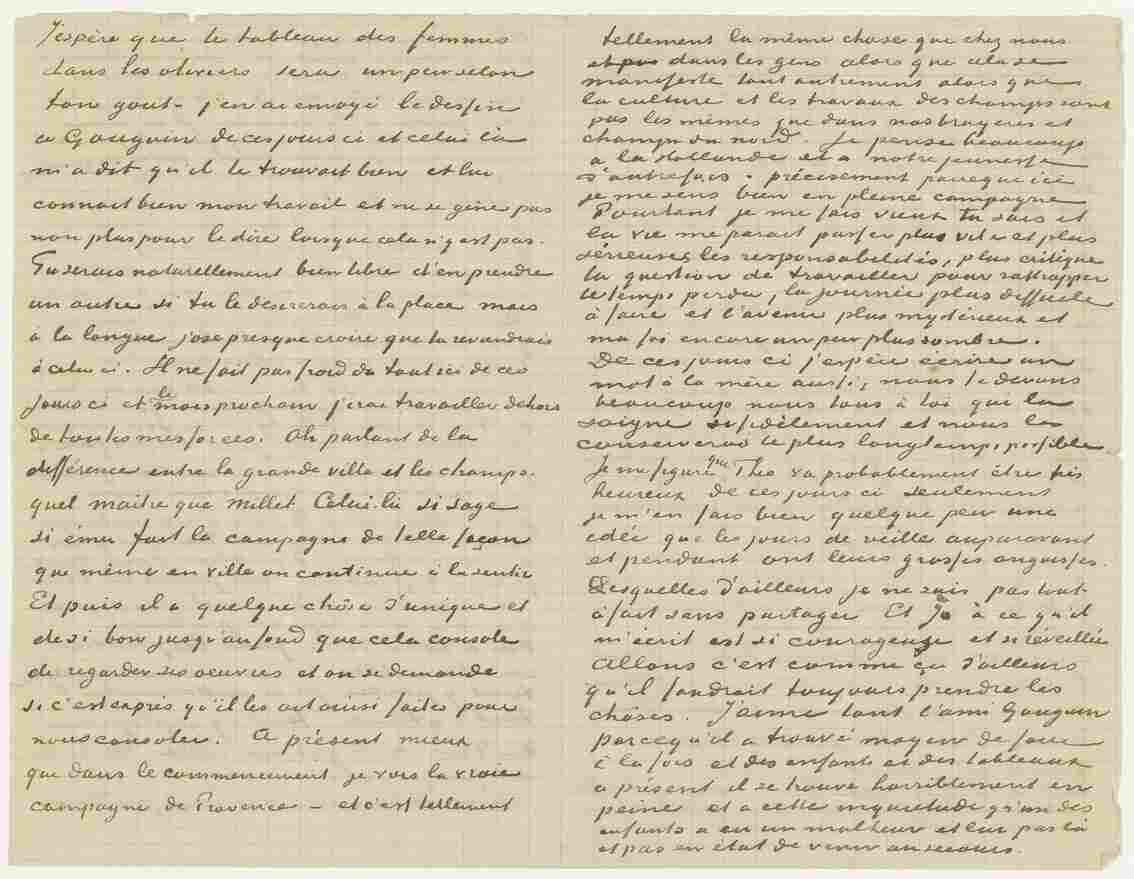 J'espère que le tableau des femmes
dans les oliviers sera un peu selon
ton gout – j'en ai envoyé le dessin
a Gauguin de ces jours ci et celui là
m'a dit qu'il le trouvait bien et lui
connait bien mon travail et ne se gêne pas
non plus pour le dire lorsque cela n'y est pas.
Tu serais naturellement bien libre d'en prendre
un autre si tu le désirerais à la place mais
à la longue j'ose presque croire que tu reviendrais
à celui ci. Il ne fait pas froid du tout ici de ces
jours ci et le mois prochain j'irai travailler dehors
de toutes mes forces. Ah parlant de la
différence entre la grande ville et les champs.
quel maitre que Millet. Celui-là si sage
si ému fait la campagne de telle façon
que même en ville on continue à la sentir
Et puis il a quelque chôse d'unique et
de si bon jusqu'au fond que cela console
de regarder ses oeuvres et on se demande
si c'est exprès qu'il les ait ainsi faites pour
nous consoler. A présent mieux
que dans le commencement je vois la vraie
campagne de Provence – et c'est tellement
tellement la même chose que chez nous
dans les gens alors que cela se
manifeste tout autrement alors que
la culture et les travaux des champs sont
pas les mêmes que dans nos bruyeres et
champs du nord. Je pense beaucoup
a la Hollande et a notre jeunesse
d'autrefois – précisement parceque ici
je me sens bien en pleine campagne
Pourtant je me fais vieux tu sais et
la vie me parait passer plus vite et plus
sérieuses les responsabilités, plus critique
la question de travailler pour rattrapper
le temps perdu, la journée plus difficile
à faire et l'avenir plus mystérieux et
ma foi encore un peu plus sombre.
De ces jours ci j'espère écrire un
mot à la mère aussi, nous te devons
beaucoup nous tous à toi qui la
soigne si fidèlement et nous la
conserveras le plus longtemps possible.
Je me figure que Theo va probablement être très
heureux de ces jours ci seulement
je m'en fais bien quelque peu une
idée que les jours de veille auparavant
et pendant ont leurs grosses angoisses.
Desquelles d'ailleurs je ne suis pas tout
à fait sans partager Et Jo à ce qu'il
m'ecrit est si courageuse et si reveillée
Allons c'est comme ça d'ailleurs
qu'il faudrait toujours prendre les
chôses. J'aime tant l'ami Gauguin
parcequ'il a trouvé moyen de faire
à la fois et des enfants et des tableaux
a présent il se trouve horriblement en
peine et a cette inquietude qu'un des
enfants a eu un malheur et lui pas là
et pas en état de venir au secours.